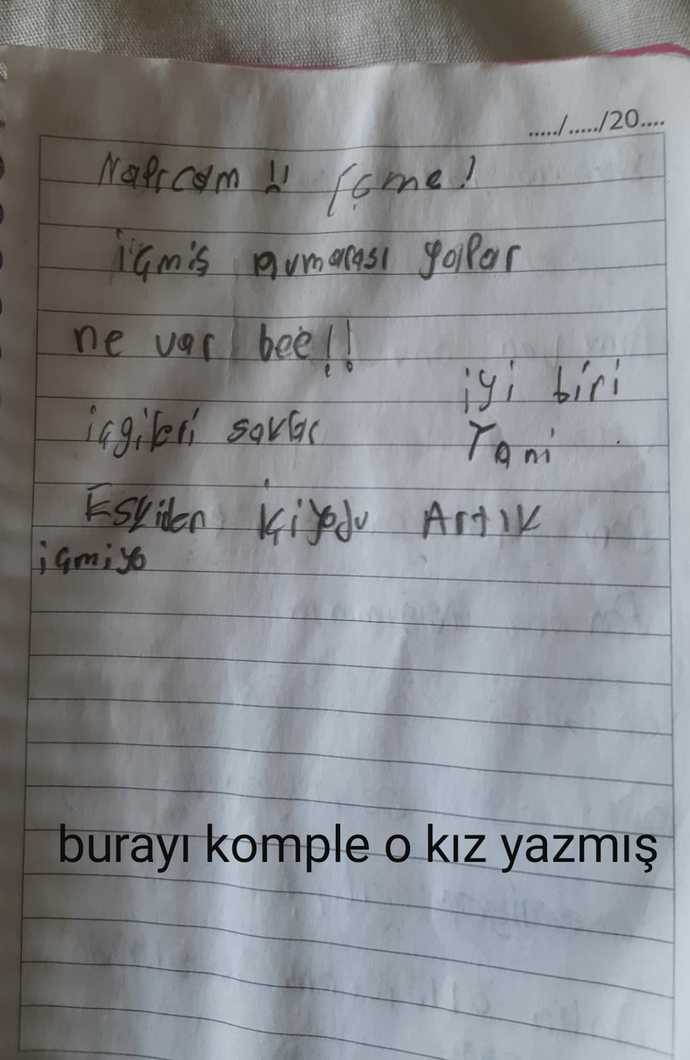 ...../...../20....
Napıcam !! İçme !
içmiş numarası yapar
ne var bee !!
iyi biri
içgileri saklar
Yani
Eskiden içiyodu Artık
içmiyo
burayı komple o kız yazmış